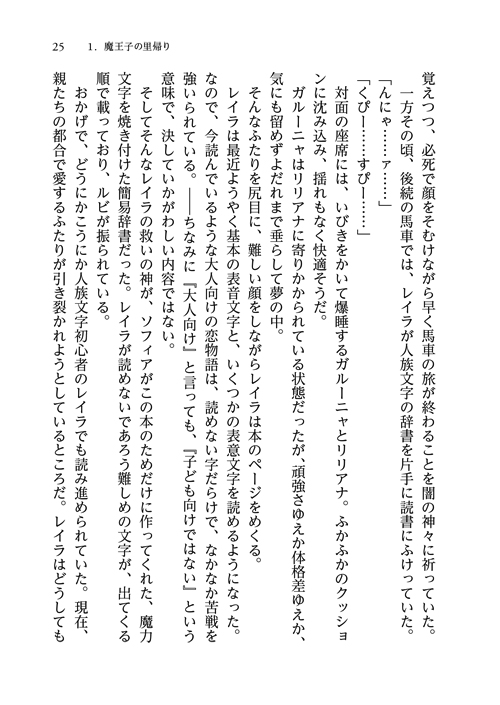 25　1．魔王子の里帰り
覚えつつ、必死で顔をそむけながら早く馬車の旅が終わることを闇の神々に祈っていた。
　一方その頃、後続の馬車では、レイラが人族文字の辞書を片手に読書にふけっていた。
「んにゃ……ァ……」
「くぴー……すぴー……」
　対面の座席には、いびきをかいて爆睡するガルーニャとリリアナ。ふかふかのクッショ
ンに沈み込み、揺れもなく快適そうだ。
　ガルーニャはリリアナに寄りかかられている状態だったが、頑強さゆえか体格差ゆえか、
気にも留めずよだれまで垂らして夢の中。
　そんなふたりを尻目に、難しい顔をしながらレイラは本のページをめくる。
　レイラは最近ようやく基本の表音文字と、いくつかの表意文字を読めるようになった。
なので、今読んでいるような大人向けの恋物語は、読めない字だらけで、なかなか苦戦を
強いられている。――ちなみに『大人向け』と言っても、『子ども向けではない』という
意味で、決していかがわしい内容ではない。
　そしてそんなレイラの救いの神が、ソフィアがこの本のためだけに作ってくれた、魔力
文字を焼き付けた簡易辞書だった。レイラが読めないであろう難しめの文字が、出てくる
順で載っており、ルビが振られている。
　おかげで、どうにかこうにか人族文字初心者のレイラでも読み進められていた。現在、
親たちの都合で愛するふたりが引き裂かれようとしているところだ。レイラはどうしても